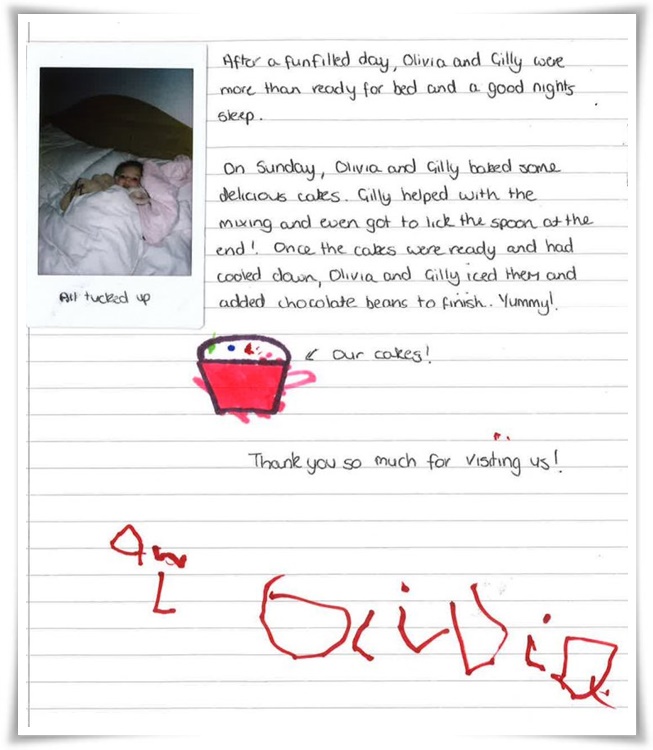 After a funfilled day, Olivia and Gilly were
more than ready for bed and a good nights
sleep.
On Sunday, Olivia and Gilly baked some
delicious cakes. Gilly helped with the
mixing and even got to lick the spoon at the
end! Once the cakes were ready and had
cooled down, Olivia and Gilly iced them and
added chocolate beans to finish. Yummy!
All tucked up
our cakes!
Thank you so much for visiting us!
Olivia